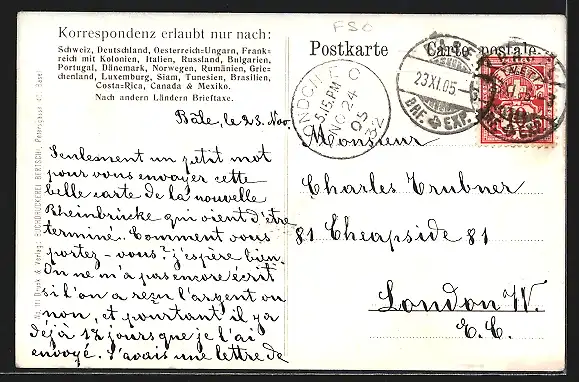 FSO
Korrespondenz erlaubt nur nach:
Schweiz, Deutschland, Oesterreich-Ungarn, Frank-
reich mit Kolonien, Italien, Russland, Bulgarien,
Portugal, Dänemark, Norwegen, Rumänien, Grie-
chenland, Luxemburg, Siam, Tunesien, Brasilien,
Costa-Rica, Canada & Mexiko.
Nach andern Ländern Brieftaxe.
Postkarte
Carte postale
23.XI.05
BRF. EXP.
LONDON E C
5.15 PM
NO 24
05
32
HELVETIA
Bâle, le 23. Nov.
Seulement un petit mot
pour vous envoyer cette
belle carte de la nouvelle
Rheinbrücke qui vient d'être
terminé. Comment vous
portez-vous? j'espère bien.
On ne m'a pas encore écrit
si l'on a reçu l'argent ou
non, et pourtant il y a
déjà 12 jours que je l'ai
envoyé. J'avais une lettre de
Monsieur
Charles Trubner
81 Cheapside 81
London W.
E.C.
No. 111 Druck & Verlag: BUCHDRUCKEREI BERTSCHI, Petersgasse 41, Basel